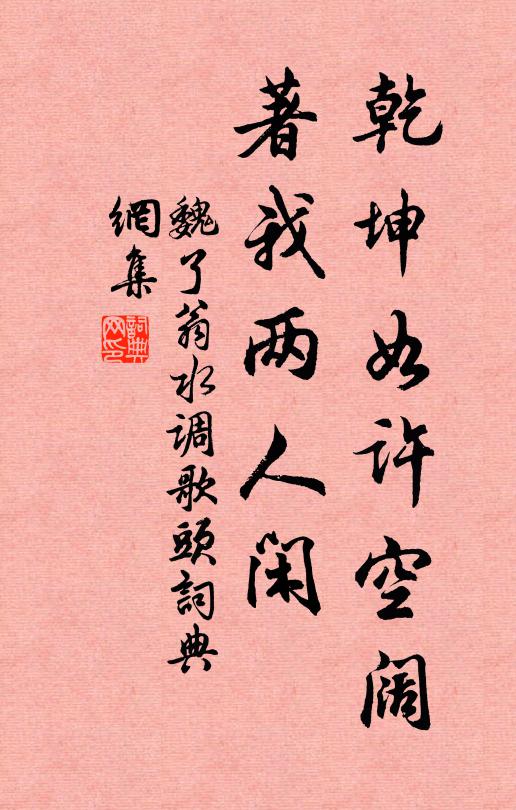 乾坤如许空阔
著我两人闲
魏了翁水调歌头詞典
網集
詞典网印